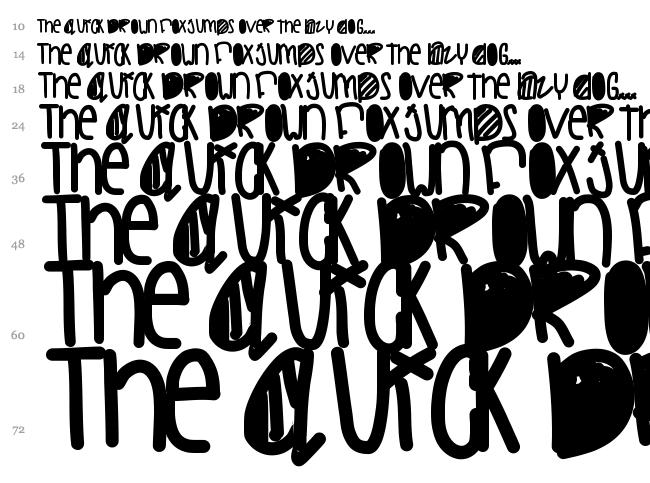 10 The quick brown fox jumps over the lazy dog...
14 The quick brown fox jumps over the lazy dog...
18 The quick brown fox jumps over the lazy dog...
24 The quick brown fox jumps over
36 The quick brown fox
48 The quick brown
60 The quick
72 The quick